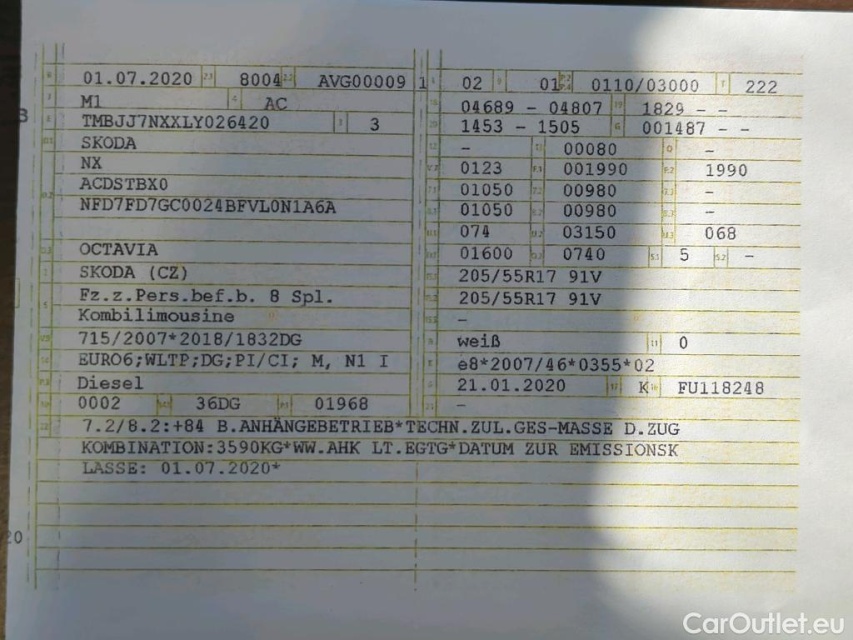 01.07.2020 8004 AVG00009 1 02 01 0110/03000 222
M1 AC 04689 - 04807 1829 - -
TMBJJ7NXXLY026420 3 1453 - 1505 001487 - -
SKODA - 00080 -
NX 0123 001990 1990
ACDSTBX0 01050 00980 -
NFD7FD7GC0024BFVL0N1A6A 01050 00980 -
074 03150 068
OCTAVIA 01600 0740 5 -
SKODA (CZ) 205/55R17 91V
Fz.z.Pers.bef.b. 8 Spl. 205/55R17 91V
Kombilimousine -
715/2007*2018/1832DG weiß 0
EURO6;WLTP;DG;PI/CI; M, N1 I e8*2007/46*0355*02
Diesel 21.01.2020 K FU118248
0002 36DG 01968 -
7.2/8.2:+84 B.ANHÄNGEBETRIEB*TECHN.ZUL.GES-MASSE D.ZUG
KOMBINATION:3590KG*WW.AHK LT.EGTG*DATUM ZUR EMISSIONSK
LASSE: 01.07.2020*
CarOutlet.eu